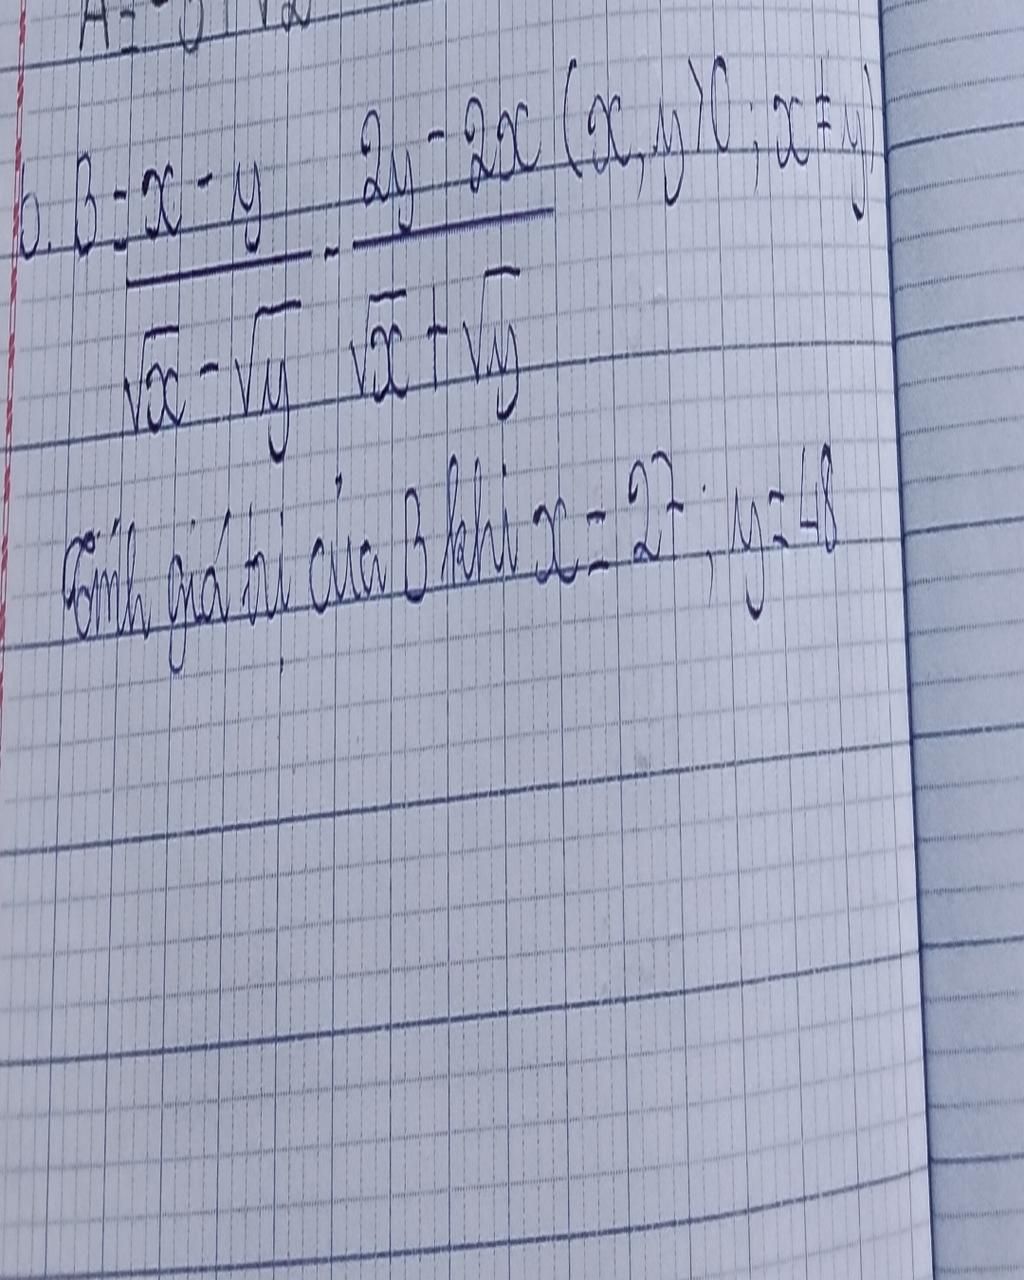 b. B = x - y / √x - √y - 2y - 2x / √x + √y (x, y > 0; x ≠ y)
Tính giá trị của B khi x = 27; y = 48